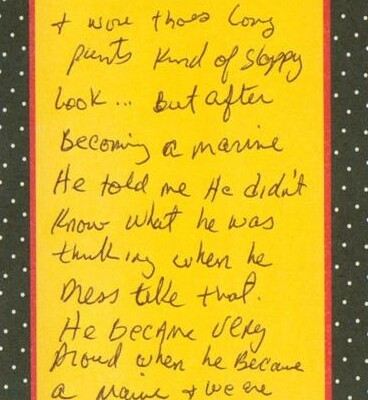 + wore thoes long
pants kind of sloppy
look... But after
Becoming a marine
He told me He didn't
know what he was
thinking when he
Dress like that.
He became very
proud when he Became
a Marine + we are